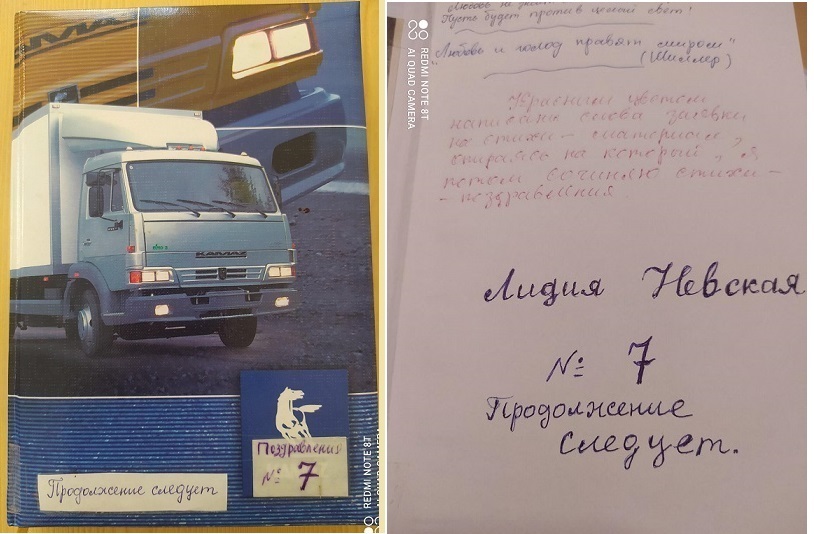 КАМАZ
Поздравления
№ 7
Продолжение следует
REDMI NOTE 8T
AI QUAD CAMERA
REDMI NOTE 8T
AI QUAD CAMERA
Пусть будет против целый свет!
"Любовь и голод правят миром"
(Шиллер)
Красным цветом
написаны слова заявки
на стихи - материал,
опираясь на который, я
потом сочиняю стихи-
- поздравления.
Лидия Невская
№ 7
Продолжение
следует.